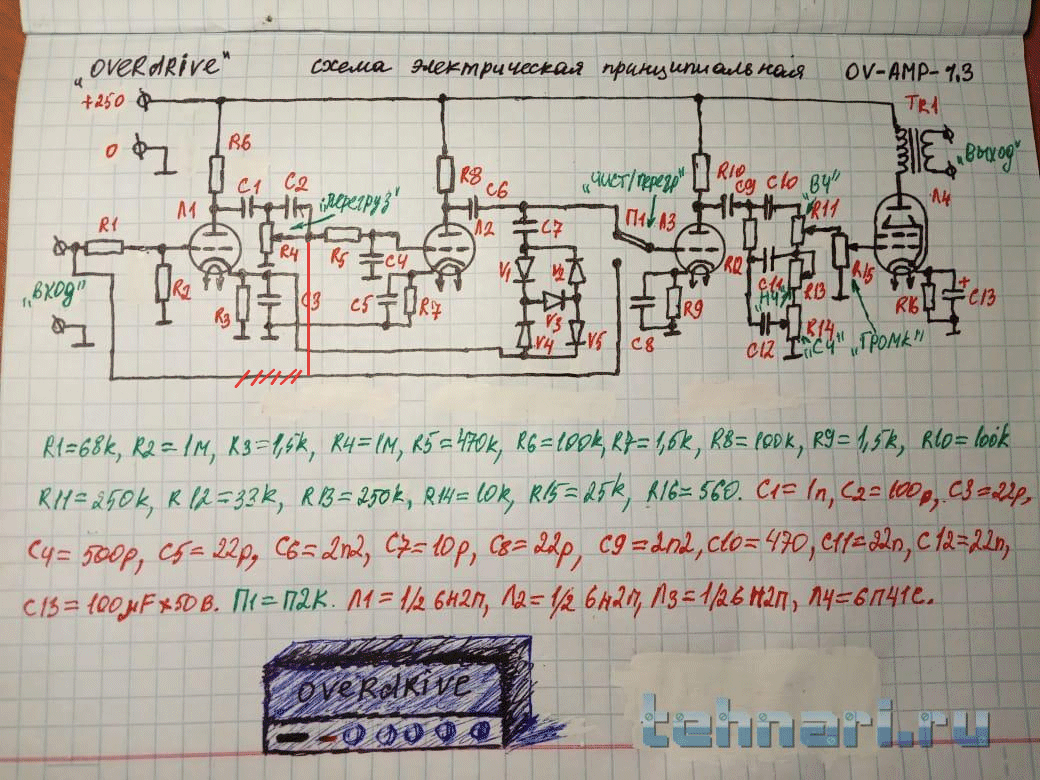 „OVERDRIVE" схема электрическая принципиальная OV-AMP-1.3
+250
TR1
0
R6
„ВЫХОД"
R8
R10
C1 C2
„ЧИСТ/перегр"
C9 C10
„ВЧ"
Л1
„перегруз"
C6
R11
Л4
R1
Л2
П1
Л3
C7
R4
R5
C4
R12
C11
R15
V1
V2
„ВХОД"
R2
C3
C5
R7
„НЧ"
R13
R16
C13
+
R3
V3
R9
R14
V4
V5
C8
C12
„СЧ"
„ГРОМК"
R1=68k, R2=1м, R3=1,5k, R4=1м, R5=470k, R6=100k, R7=1,5k, R8=100k, R9=1,5k, R10=100k
R11=250k, R12=33k, R13=250k, R14=10k, R15=25k, R16=560. C1=1n, C2=100p, C3=22p,
C4=500p, C5=22p, C6=2n2, C7=10p, C8=22p, C9=2n2, C10=470, C11=22n, C12=22n,
C13=100μF×50В. П1=П2К. Л1=1/2 6н2п, Л2=1/2 6н2п, Л3=1/2 6н2п, Л4=6п41с.
OVERDRIVE
tehnari.ru